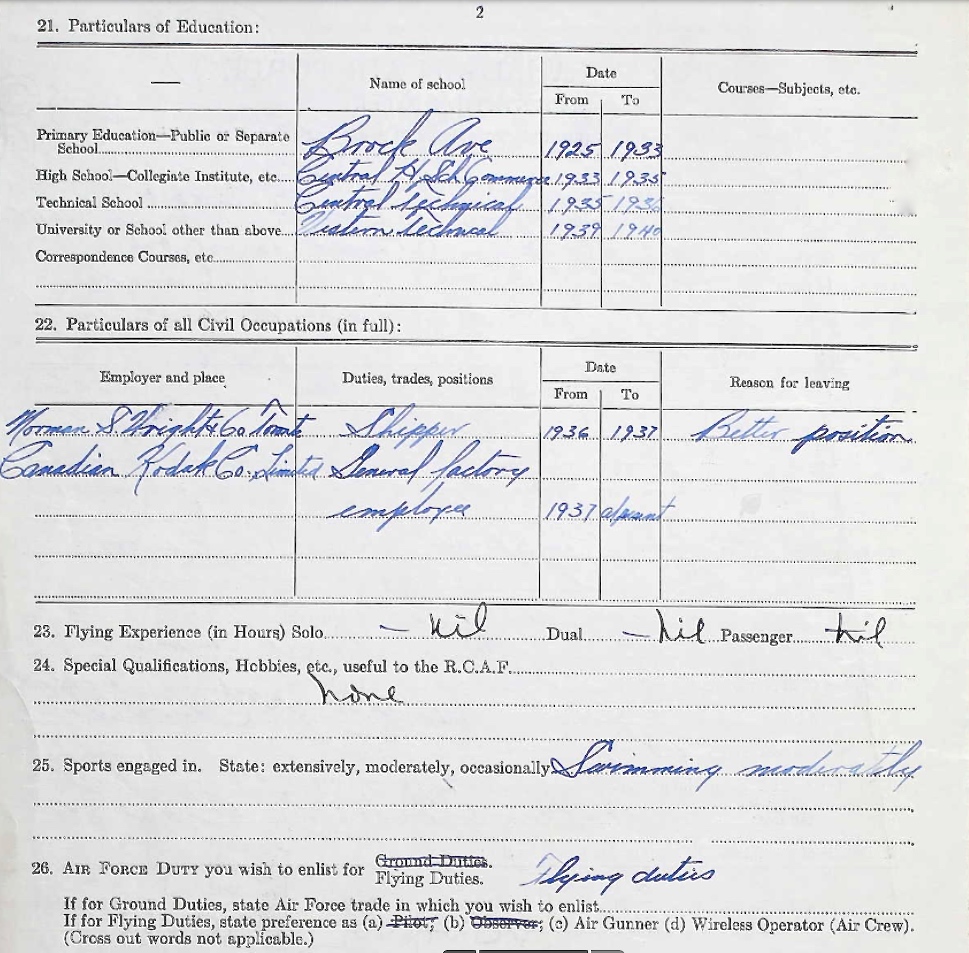 2
21. Particulars of Education:
— Name of school Date Courses—Subjects, etc.
From To
Primary Education—Public or Separate
School Brock Ave 1925 1933
High School—Collegiate Institute, etc. Central H. Sch Commerce 1933 1935
Technical School Central Technical 1935 1936
University or School other than above Western Technical 1939 1940
Correspondence Courses, etc
22. Particulars of all Civil Occupations (in full):
Employer and place Duties, trades, positions Date Reason for leaving
From To
Norman S. Wright & Co Shipper 1936 1937 Better position
Canadian Kodak Co. Limited General factory
employee 1937
23. Flying Experience (in Hours) Solo — Nil Dual — Nil Passenger Nil
24. Special Qualifications, Hobbies, etc., useful to the R.C.A.F.
None
25. Sports engaged in. State: extensively, moderately, occasionally Swimming moderatly
26. AIR FORCE DUTY you wish to enlist for Ground Duties.
Flying Duties. Flying duties
If for Ground Duties, state Air Force trade in which you wish to enlist
If for Flying Duties, state preference as (a) Pilot; (b) Observer; (c) Air Gunner (d) Wireless Operator (Air Crew).
(Cross out words not applicable.)